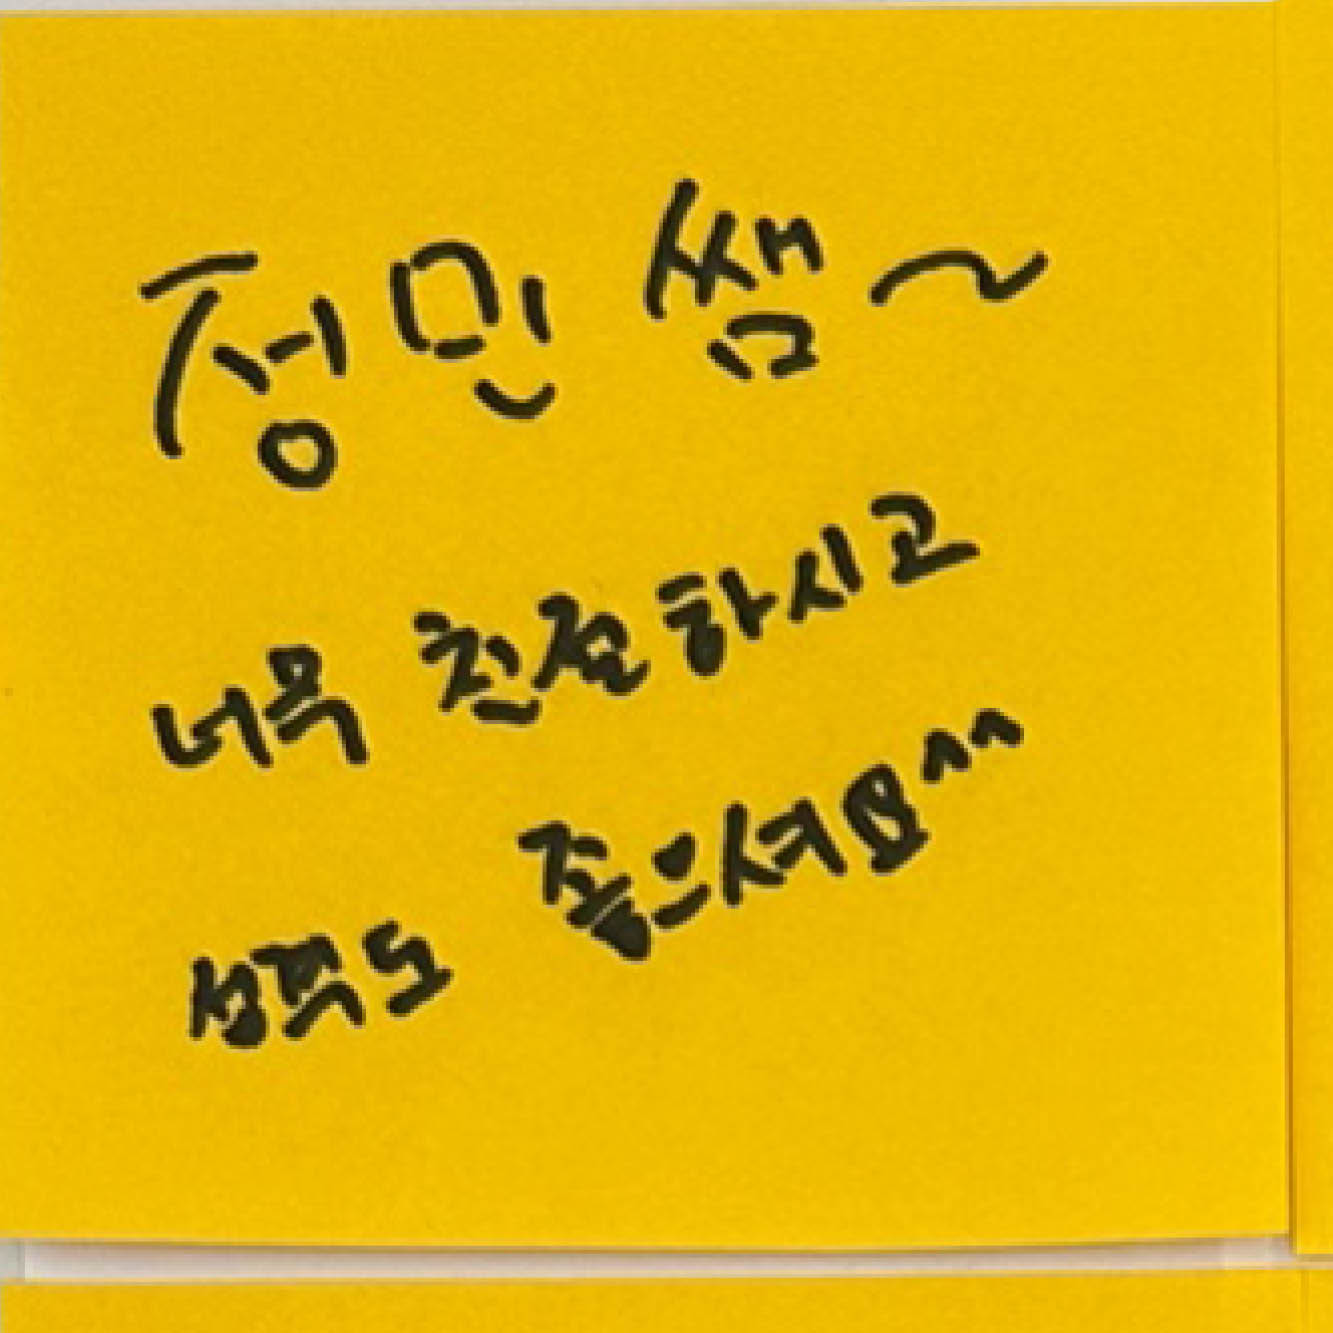 정민 쌤~
너무 친절하시고
성격도 좋으셔요^^